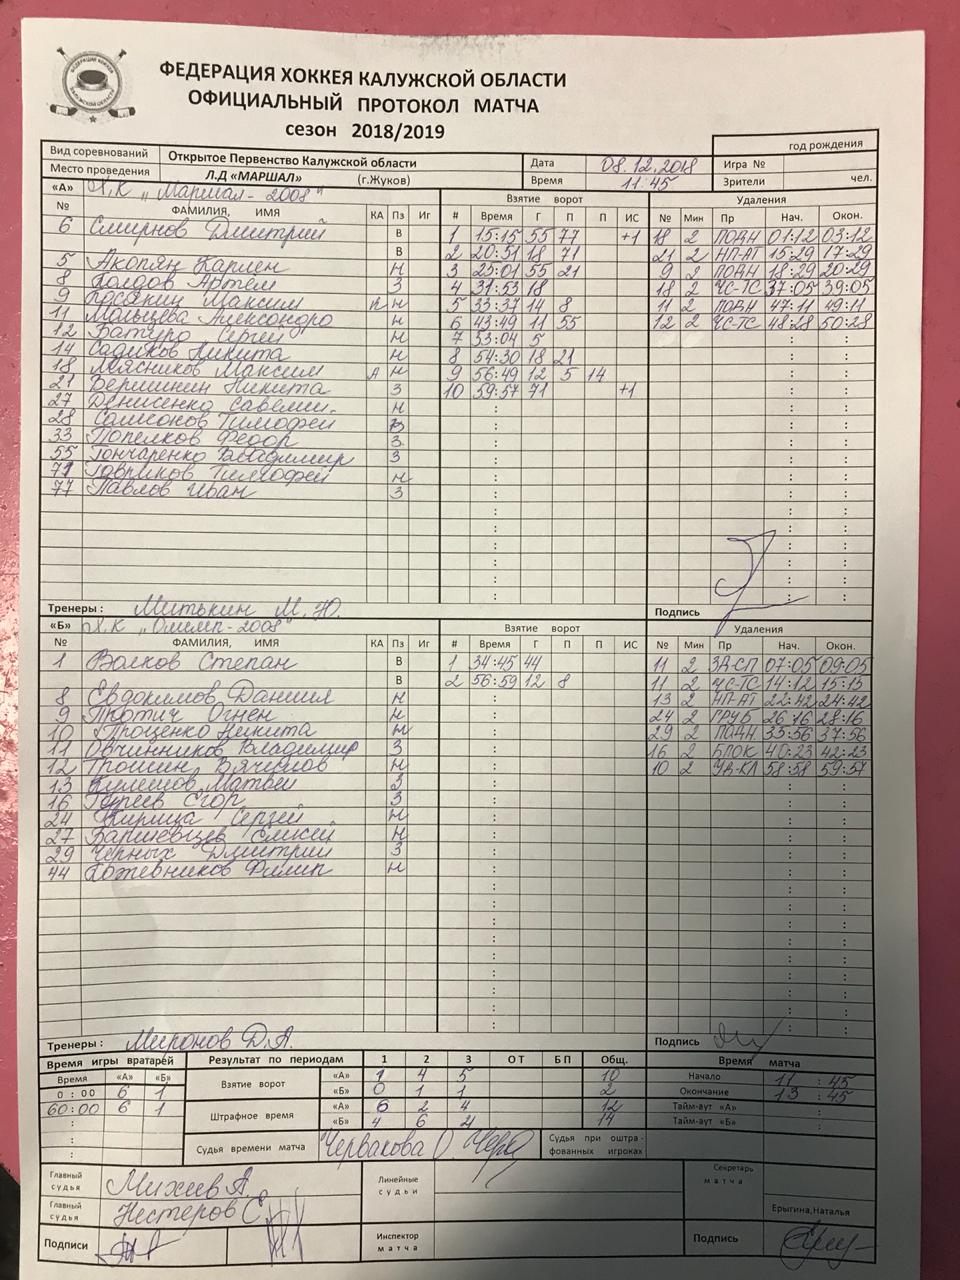 ФЕДЕРАЦИЯ ХОККЕЯ КАЛУЖСКОЙ ОБЛАСТИ
ОФИЦИАЛЬНЫЙ ПРОТОКОЛ МАТЧА
сезон 2018/2019
год рождения
Вид соревнований Открытое Первенство Калужской области Дата 08.12.2018 Игра №
Место проведения Л.Д «МАРШАЛ» (г.Жуков) Время 11:45 Зрители чел.
«А» Х.К „Маршал-2008" Взятие ворот Удаления
№ ФАМИЛИЯ, ИМЯ КА Пз Иг # Время Г П П ИС № Мин Пр Нач. Окон.
6 Смирнов Дмитрий В 1 15:15 55 77 +1 18 2 ПОДН 01:12 03:12
В 2 20:51 18 71 21 2 НП-АТ 15:29 17:29
5 Акопян Карлен Н 3 25:01 55 21 9 2 ПОДН 18:29 20:29
8 Колдов Артём З 4 31:53 18 18 2 ЧС-ТС 37:05 39:05
9 Косякин Максим К Н 5 33:37 14 8 11 2 ПОДН 47:11 49:11
11 Мальцева Александра Н 6 43:49 11 55 12 2 ЧС-ТС 48:28 50:28
12 Батуро Сергей Н 7 53:04 5
14 Садиков Никита Н 8 54:30 18 21
18 Мясников Максим А Н 9 56:49 12 5 14
21 Вершинин Никита З 10 59:57 71 +1
27 Денисенко Савелий Н
28 Самсонов Тимофей В
33 Попелков Федор З
55 Гончаренко Владимир З
71 Гавриков Тимофей Н
77 Павлов Иван З
Тренеры : Митькин М.Ю. Подпись
«Б» Х.К „Олимп-2008" Взятие ворот Удаления
№ ФАМИЛИЯ, ИМЯ КА Пз Иг # Время Г П П ИС № Мин Пр Нач. Окон.
1 Волков Степан В 1 34:45 44 11 2 ЗД-СП 07:05 09:05
В 2 56:59 12 8 11 2 ЧС-ТС 14:12 15:15
8 Евдокимов Даниил Н 13 2 НП-АТ 22:42 24:42
9 Протич Огнен Н 24 2 ГРУБ 26:16 28:16
10 Проценко Никита Н 29 2 ПОДН 35:56 37:56
11 Овчинников Владимир З 16 2 БЛОК 40:23 42:23
12 Трошин Вячеслав Н 10 2 УД-КЛ 58:58 59:57
13 Кулешов Матвей З
16 Гуреев Егор З
24 Кирица Сергей Н
27 Алексей Н
29 Черных Дмитрий З
44 Кожевников Филип Н
Тренеры : Миронов Д.А. Подпись
Время игры вратарей Результат по периодам 1 2 3 ОТ БП Общ. Время матча
Время «А» «Б» Взятие ворот «А» 1 4 5 10 Начало 11 : 45
0 : 00 6 1 «Б» 0 1 1 2 Окончание 13 : 45
60:00 6 1 Штрафное время «А» 6 2 4 12 Тайм-аут «А»
«Б» 4 6 4 14 Тайм-аут «Б»
Судья времени матча Червакова О. Судья при оштрафованных игроках
Главный судья Михеев А. Линейные судьи Секретарь матча
Главный судья Нестеров С. Ерыгина,Наталья
Подписи Инспектор матча Подпись